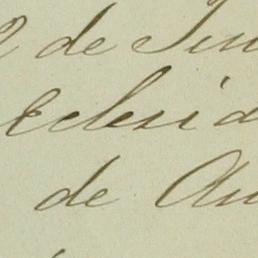 2 de Jun
Eclesid
de Au